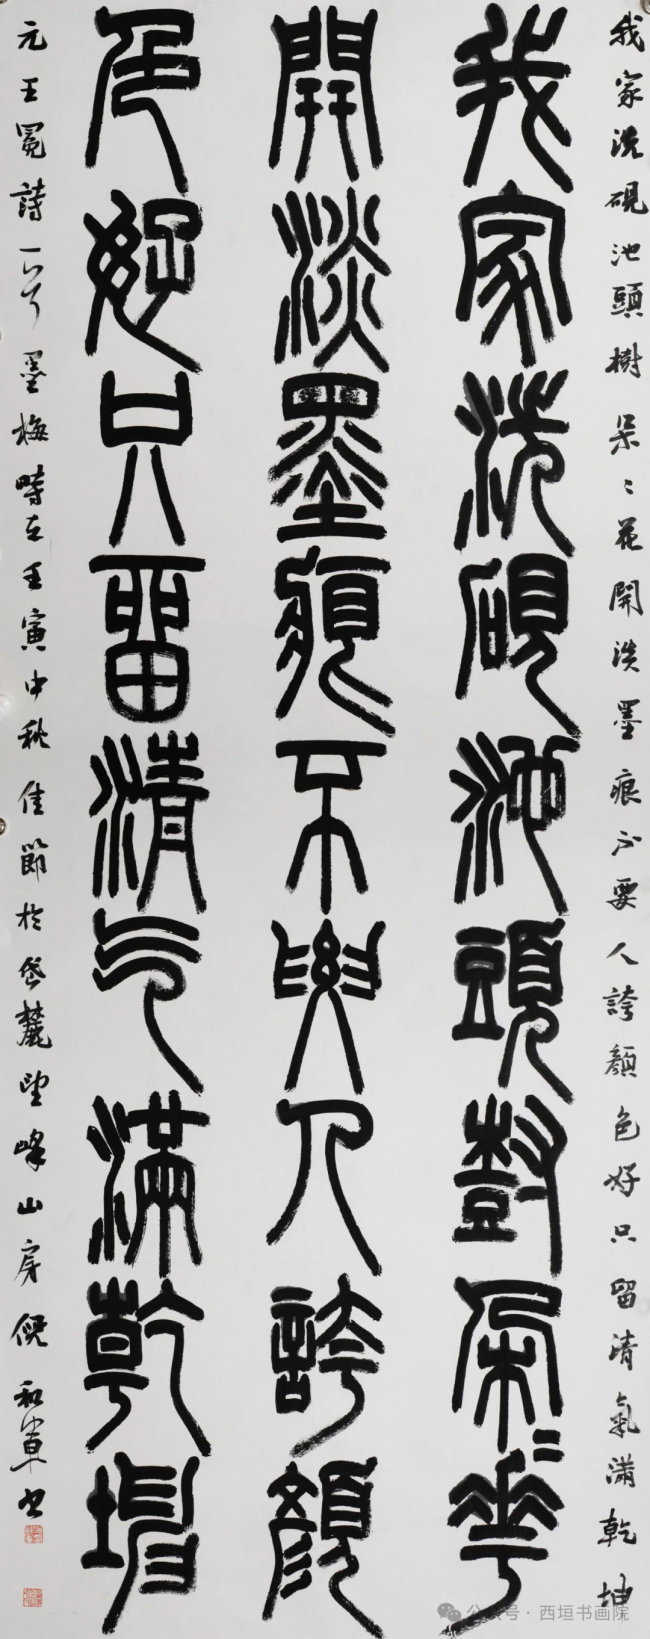 我家洗硯池頭樹朵〻花開淡墨痕不要人誇顏色好只留清氣滿乾坤
我家洗硯池頭樹朵〻華
開淡墨痕不要人誇顏
色好只留清气滿乾坤
元王冕詩一首墨梅時在壬寅中秋佳節於岱麓望峰山房倪和軍書
公众号·西垣书画院